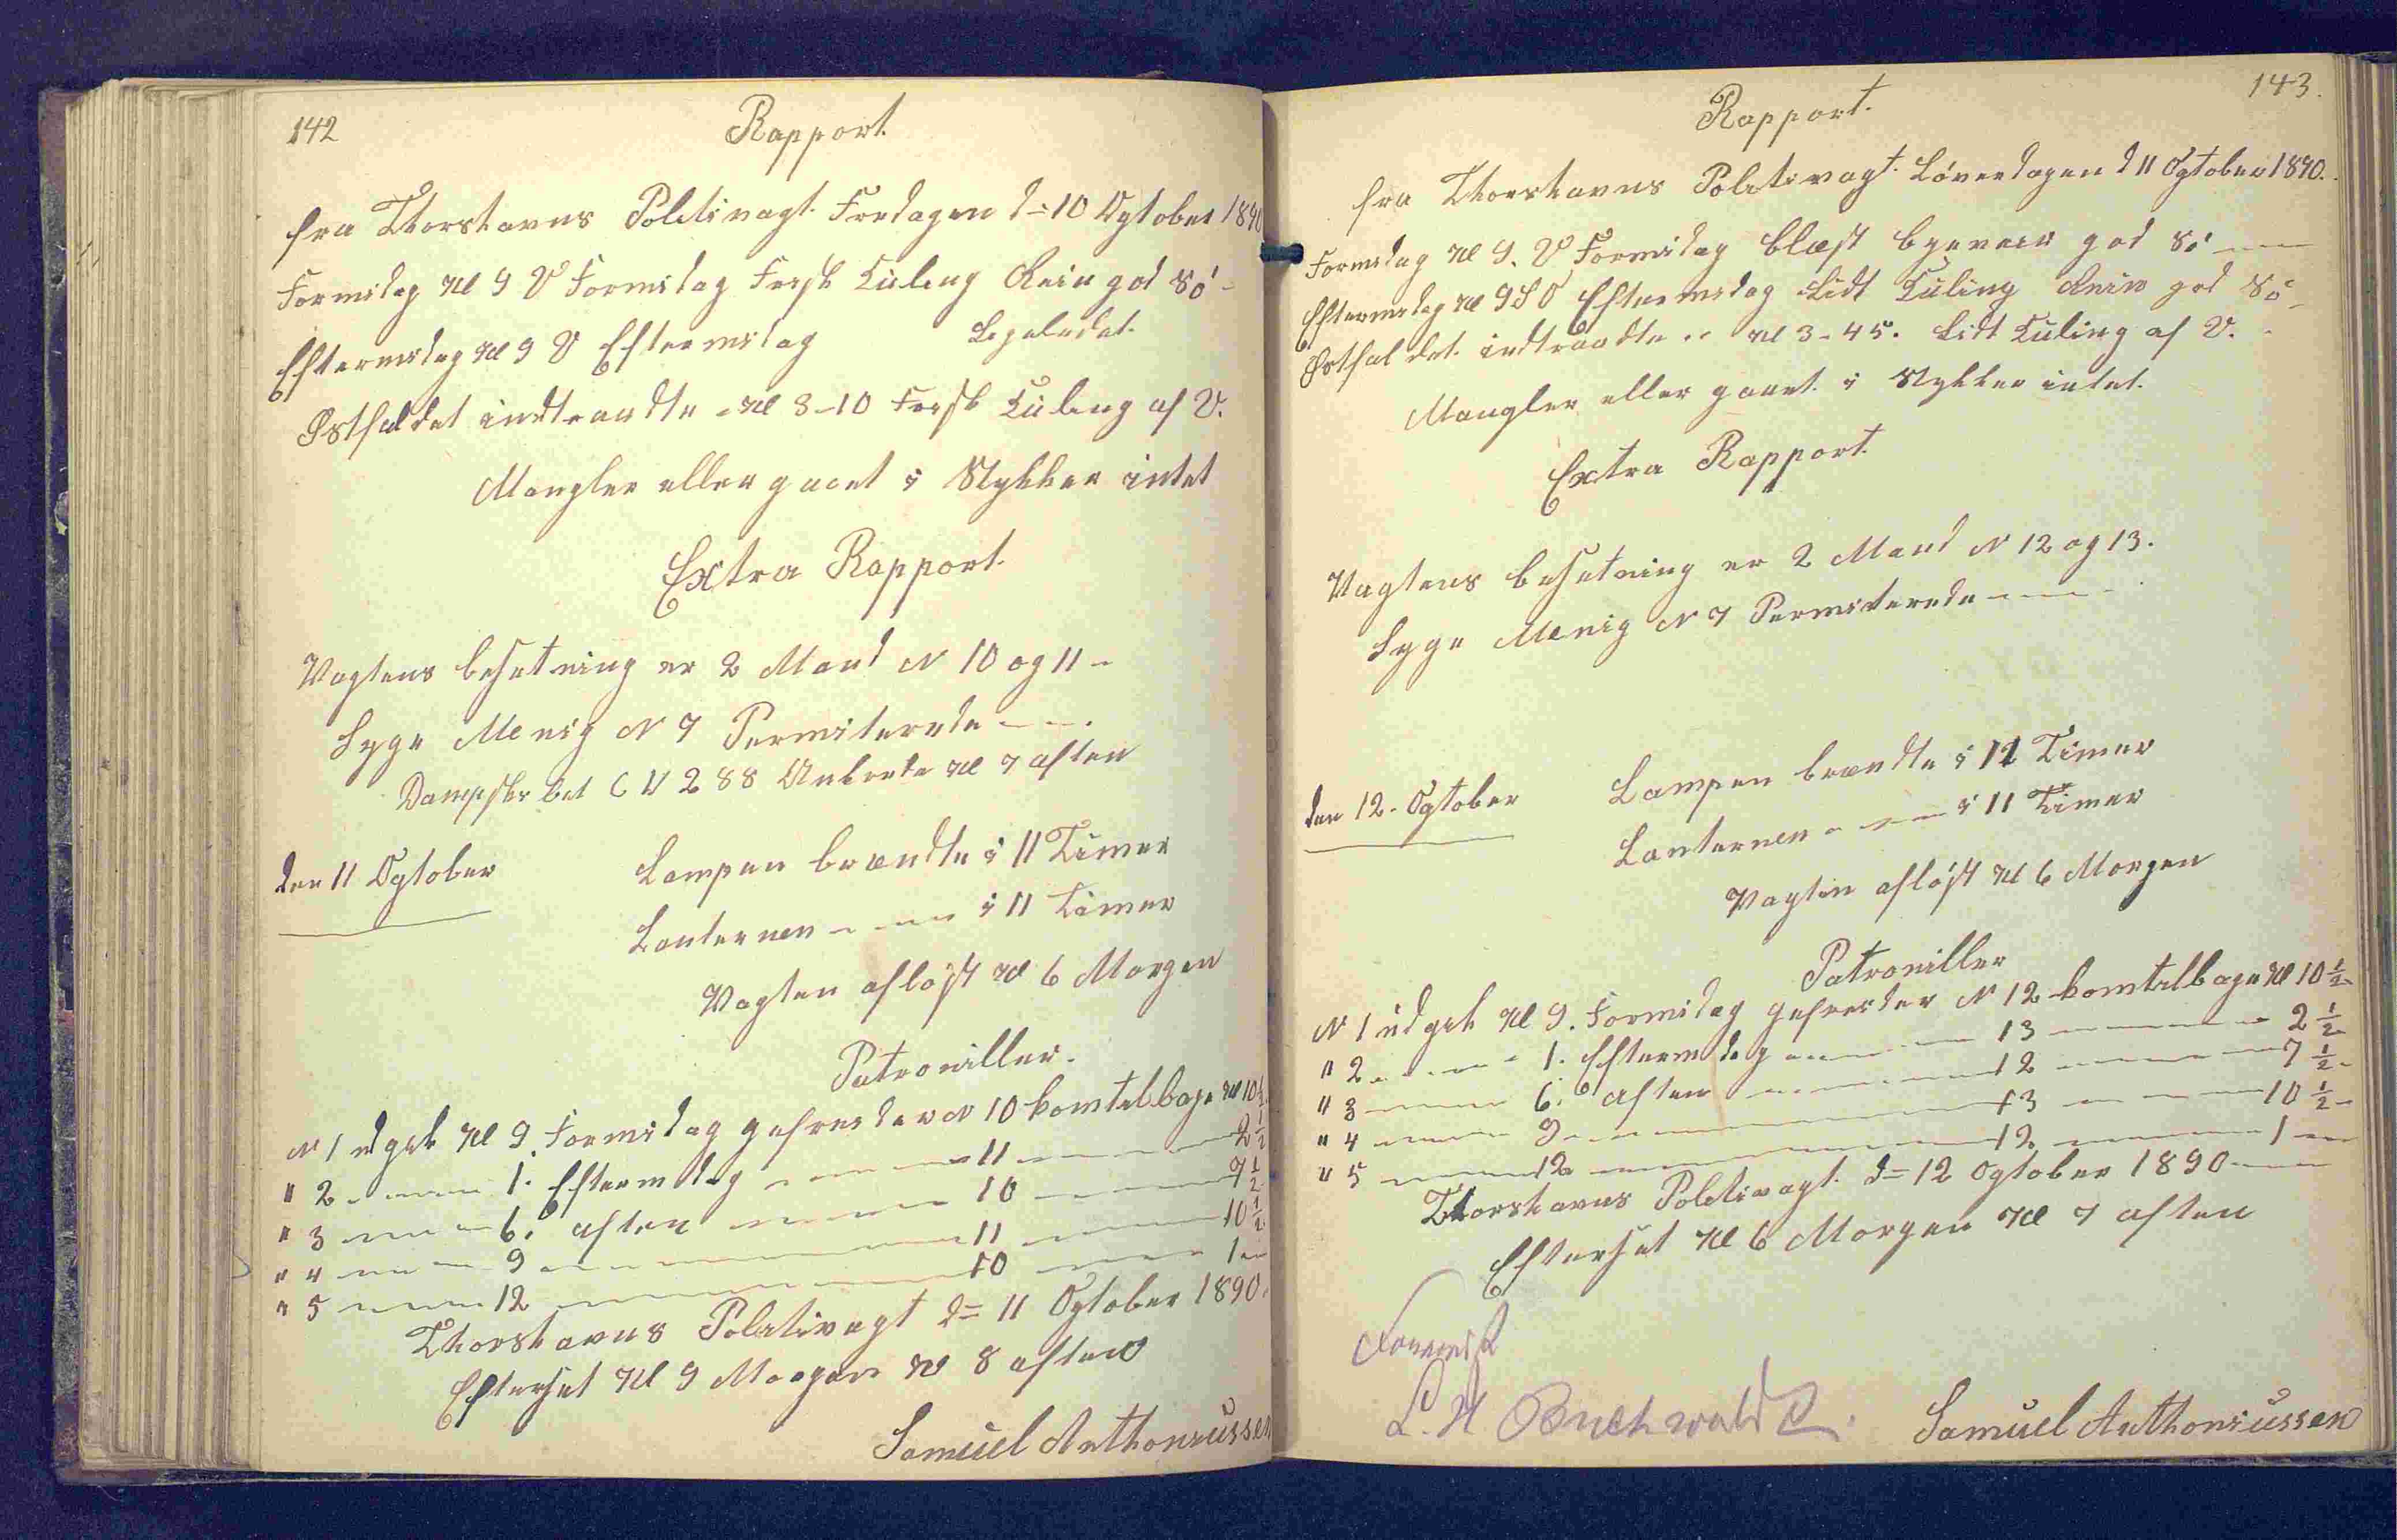 142
Rapport.
fra Thorshavns Politivagt. Fredagen d= 10 Ogtober 1890
Formidag Kl 9 V Formidag Fersk Kuling Rein god Sö -
Eftermidag Kl 9 V Eftermidag
Østfaldet indtraadte - Kl 3-10 Fersk Kuling af V.
Mangler eller gaaet i Stykker intet
Extra Rapport.
Vagtens besetning er 2 Mand N 10 og 11 -
Syge Menig N 7 Permiterede - - .
Dampskibet 288 Ankrede Kl 7 aften
den 11 Ogtober
Lampen brændte i 11 Timer
Lanternen - - - i 11 Timer
Vagten afløst Kl 6 Morgen
Patrouiller.
N 1 udgik Kl 9. Formidag gefreider N 10 kom telbage Kl 10 ½
" 2 - - - 1. Eftermidag - - - 11 - - - 2 ½
" 3 - - - 6. aften - - - 10 - - - 7 ½
" 4 - - - 9 - - - 11 - - - 10 ½
" 5 - - - 12 - - - 10 - - - 1 -
Thorshavns Politivagt d= 11 Ogtober 1890.
Efterset Kl 9 Morgen Kl 8 aften
Samuel Anthoniussen
143.
Rapport.
fra Thorshavns Politivagt. Löverdagen d 11 Ogtober 1890.
Formidag Kl 9. V Formidag blæst bgeveir god Sö - -
Eftermidag Kl 9 SV Eftermidag Lidt Kuling Rein god Sö -
Østfaldet indtraadte - Kl 3-45. Lidt Kuling af V. -
Mangler eller gaaet i Stykker intet.
Extra Rapport.
Vagtens besetning er 2 Mand N 12 og 13.
Syge Menig N 7 Permiterede - - -
den 12. Ogtober
Lampen brændte i 11 Timer
Lanternen - - - i 11 Timer
Vagten afløst Kl 6 Morgen
Patrouiller
N 1 udgik Kl 9. Formidag gefreider N 12 kom telbage Kl 10 ½
" 2 - - - 1. Eftermidag - - - 13 - - - 2 ½
" 3 - - - 6. aften - - - 12 - - - 7 ½
" 4 - - - 9 - - - 13 - - - 10 ½ -
" 5 - - - 12 - - - 12 - - - 1 -
Thorshavns Politivagt. d= 12 Ogtober 1890 - -
Efterset Kl 6 Morgen Kl 7 aften
L. H Buchwaldt.
Samuel Anthoniussen